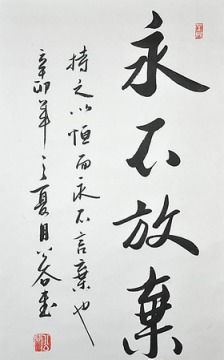 永不放棄
持之以恒而永不言棄也
辛卯年之夏月